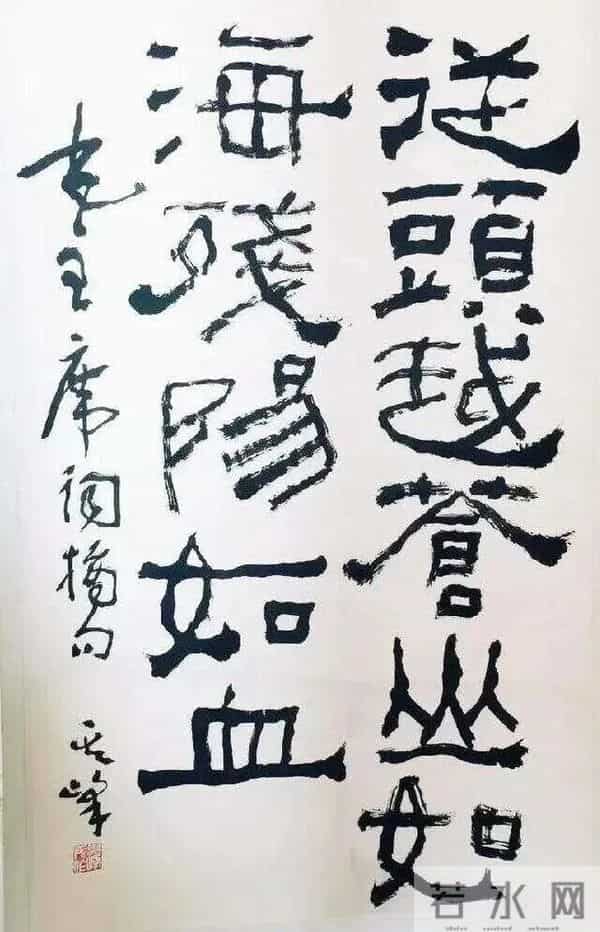 從頭越蒼山如
海殘陽如血
書主席詞摘句 其峰
若水网